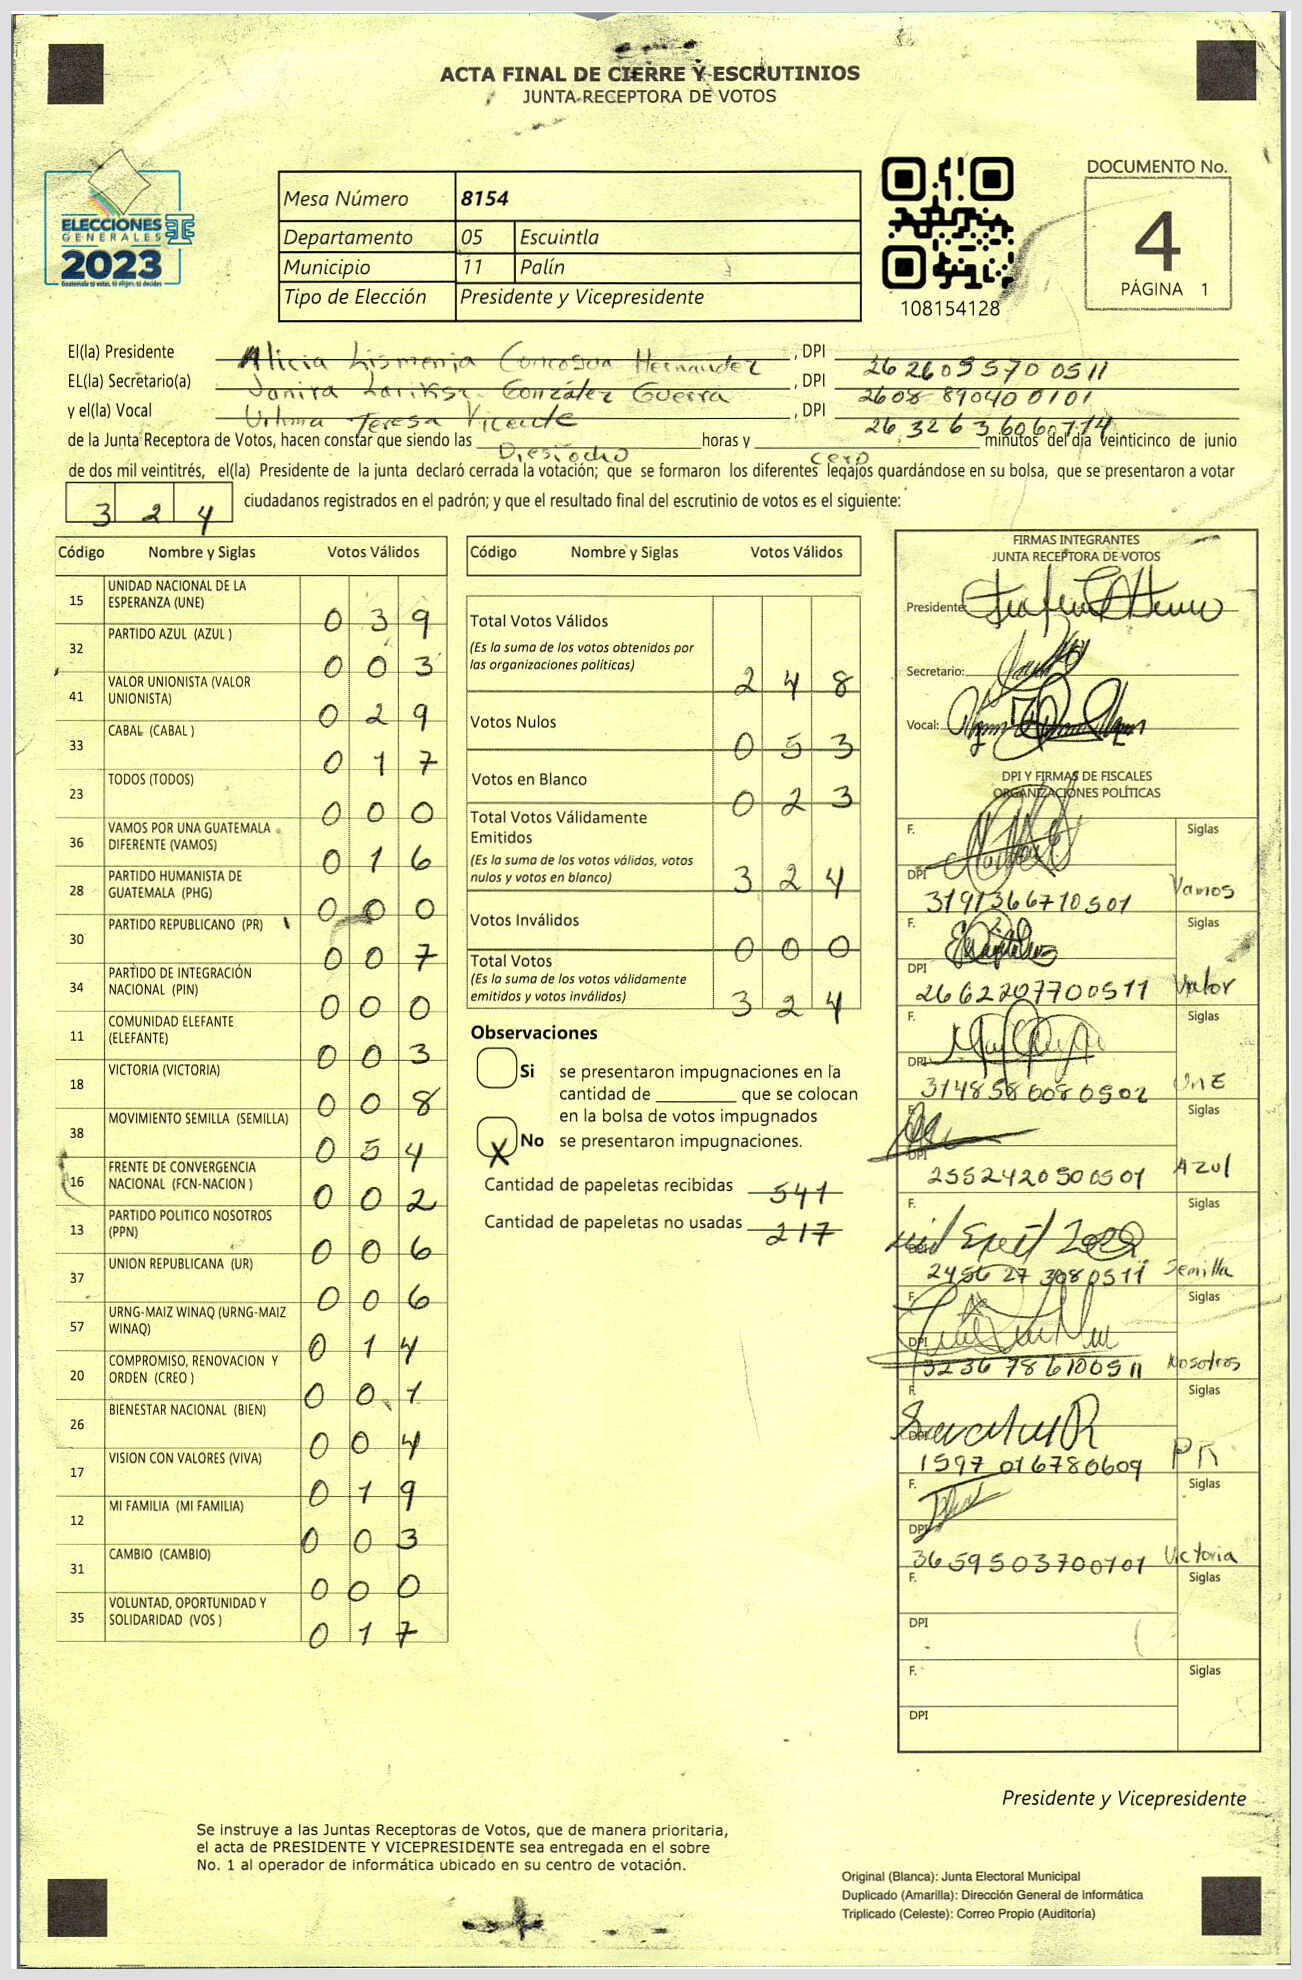 ACTA FINAL DE CIERRE Y ESCRUTINIOS
JUNTA RECEPTORA DE VOTOS
ELECCIONES
GENERALES
2023
Guatemala tú votas, tú eliges, tú decides
Mesa Número 8154
Departamento 05 Escuintla
Municipio 11 Palín
Tipo de Elección Presidente y Vicepresidente
108154128
DOCUMENTO No.
4
PÁGINA 1
El(la) Presidente Alicia Hernandez, DPI 2626095700511
EL(la) Secretario(a) González Guerra, DPI 2608890400101
y el(la) Vocal Teresa Vicente, DPI
de la Junta Receptora de Votos, hacen constar que siendo las Diesiocho horas y cero minutos del día veinticinco de junio
de dos mil veintitrés, el(la) Presidente de la junta declaró cerrada la votación; que se formaron los diferentes legajos guardándose en su bolsa, que se presentaron a votar
324 ciudadanos registrados en el padrón; y que el resultado final del escrutinio de votos es el siguiente:
Código Nombre y Siglas Votos Válidos
15 UNIDAD NACIONAL DE LA ESPERANZA (UNE) 039
32 PARTIDO AZUL (AZUL ) 003
41 VALOR UNIONISTA (VALOR UNIONISTA) 029
33 CABAL (CABAL ) 017
23 TODOS (TODOS) 000
36 VAMOS POR UNA GUATEMALA DIFERENTE (VAMOS) 016
28 PARTIDO HUMANISTA DE GUATEMALA (PHG) 000
30 PARTIDO REPUBLICANO (PR) 007
34 PARTIDO DE INTEGRACIÓN NACIONAL (PIN) 000
11 COMUNIDAD ELEFANTE (ELEFANTE) 003
18 VICTORIA (VICTORIA) 008
38 MOVIMIENTO SEMILLA (SEMILLA) 054
16 FRENTE DE CONVERGENCIA NACIONAL (FCN-NACION ) 002
13 PARTIDO POLITICO NOSOTROS (PPN) 006
37 UNION REPUBLICANA (UR) 006
57 URNG-MAIZ WINAQ (URNG-MAIZ WINAQ) 014
20 COMPROMISO, RENOVACION Y ORDEN (CREO ) 001
26 BIENESTAR NACIONAL (BIEN) 004
17 VISION CON VALORES (VIVA) 019
12 MI FAMILIA (MI FAMILIA) 003
31 CAMBIO (CAMBIO) 000
35 VOLUNTAD, OPORTUNIDAD Y SOLIDARIDAD (VOS ) 017
Código Nombre y Siglas Votos Válidos
Total Votos Válidos 248
(Es la suma de los votos obtenidos por
las organizaciones políticas)
Votos Nulos 053
Votos en Blanco 023
Total Votos Válidamente
Emitidos 324
(Es la suma de los votos válidos, votos
nulos y votos en blanco)
Votos Inválidos 000
Total Votos 324
(Es la suma de los votos válidamente
emitidos y votos inválidos)
Observaciones
Si se presentaron impugnaciones en la
cantidad de ________ que se colocan
en la bolsa de votos impugnados
X No se presentaron impugnaciones.
Cantidad de papeletas recibidas 541
Cantidad de papeletas no usadas 217
FIRMAS INTEGRANTES
JUNTA RECEPTORA DE VOTOS
Presidente:
Secretario:
Vocal:
DPI Y FIRMAS DE FISCALES
ORGANIZACIONES POLÍTICAS
F. Siglas
DPI 3191366710501 Vamos
F. Siglas
DPI 2662207700511 Valor
F. Siglas
DPI 3148586080502 UNE
F. Siglas
DPI 2552420500501 Azul
F. Siglas
DPI 2456273080511 Semilla
F. Siglas
DPI 3236786100511 Nosotros
F. Siglas
DPI 1597016780609 PR
F. Siglas
DPI 3659503700101 Victoria
F. Siglas
DPI
F. Siglas
DPI
Presidente y Vicepresidente
Se instruye a las Juntas Receptoras de Votos, que de manera prioritaria,
el acta de PRESIDENTE Y VICEPRESIDENTE sea entregada en el sobre
No. 1 al operador de informática ubicado en su centro de votación.
Original (Blanca): Junta Electoral Municipal
Duplicado (Amarilla): Dirección General de Informática
Triplicado (Celeste): Correo Propio (Auditoría)